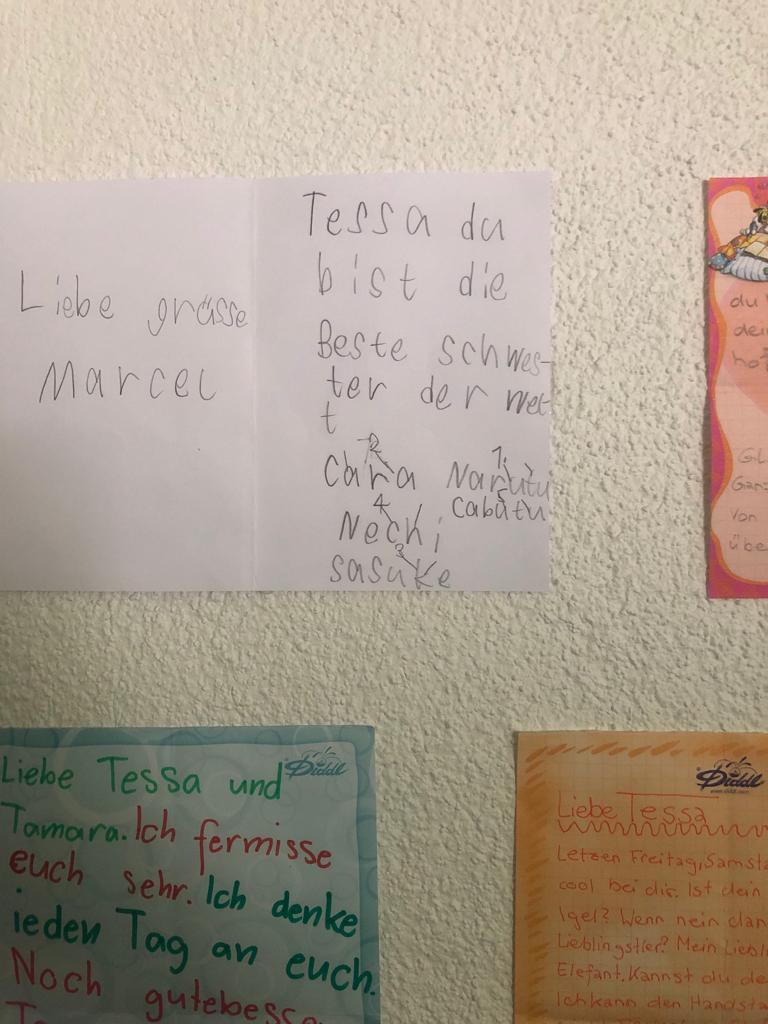 Liebe grüsse
Marcel
Tessa du
bist die
Beste schwes-
ter der wel
t
2
1.
Cara Narutu
4 5
cabutu
Nechi
3
sasuke
du
dein
Von
übe
Liebe Tessa und
Diddl
Tamara. Ich fermisse
euch sehr. Ich denke
ieden Tag an euch.
Noch gutebesse
Diddl
www.diddl.com
Liebe Tessa
Letzen Freitag, Samsta
cool bei dir. Ist dein
Igel? Wenn nein dan
Lieblingstier? Mein Liebli
Elefant. Kannst du de
Ich kann den Handsta